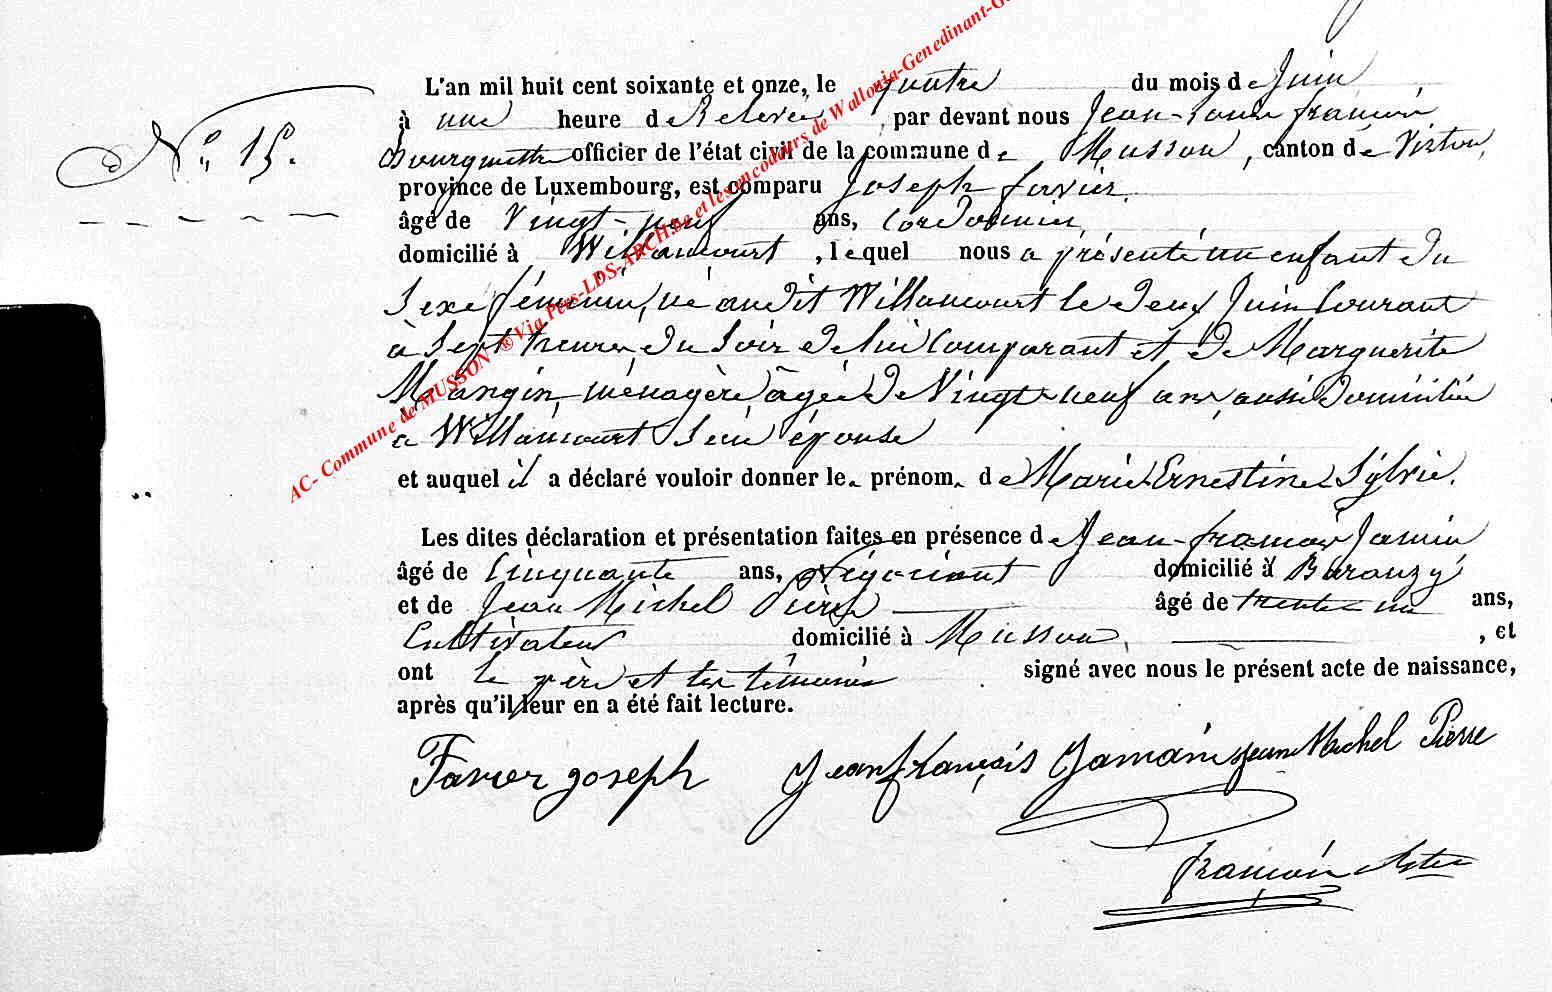 AC- Commune de MUSSON ® Via Pers-LDS-ARCH.be et les encodeurs de Wallonia-Genedinant-G
N° 15.
L'an mil huit cent soixante et onze, le quatre du mois de Juin
à une heure de Relevée, par devant nous Jean-Louis françois
Bourguette officier de l'état civil de la commune de Musson, canton de Virton,
province de Luxembourg, est comparu Joseph favier
âgé de Vingt-neuf ans, Cordonnier
domicilié à Willancourt, lequel nous a présenté un enfant du
Sexe féminin, né audit Willancourt le deux Juin Courant
à Sept heures du Soir de lui Comparant et de Marguerite
Mangin, ménagère âgée de Vingt neuf ans, aussi domiciliée
à Willancourt Son épouse
et auquel il a déclaré vouloir donner les prénoms de Marie Ernestine Sylvie.
Les dites déclaration et présentation faites en présence de Jean-françois Jamin
âgé de Cinquante ans, Négociant domicilié à Baranzy
et de Jean Michel Pierre âgé de trente un ans,
Cultivateur domicilié à Musson, , et
ont le père et les témoins signé avec nous le présent acte de naissance,
après qu'il leur en a été fait lecture.
Favier joseph Jean françois Jamain jean Michel Pierre
françois